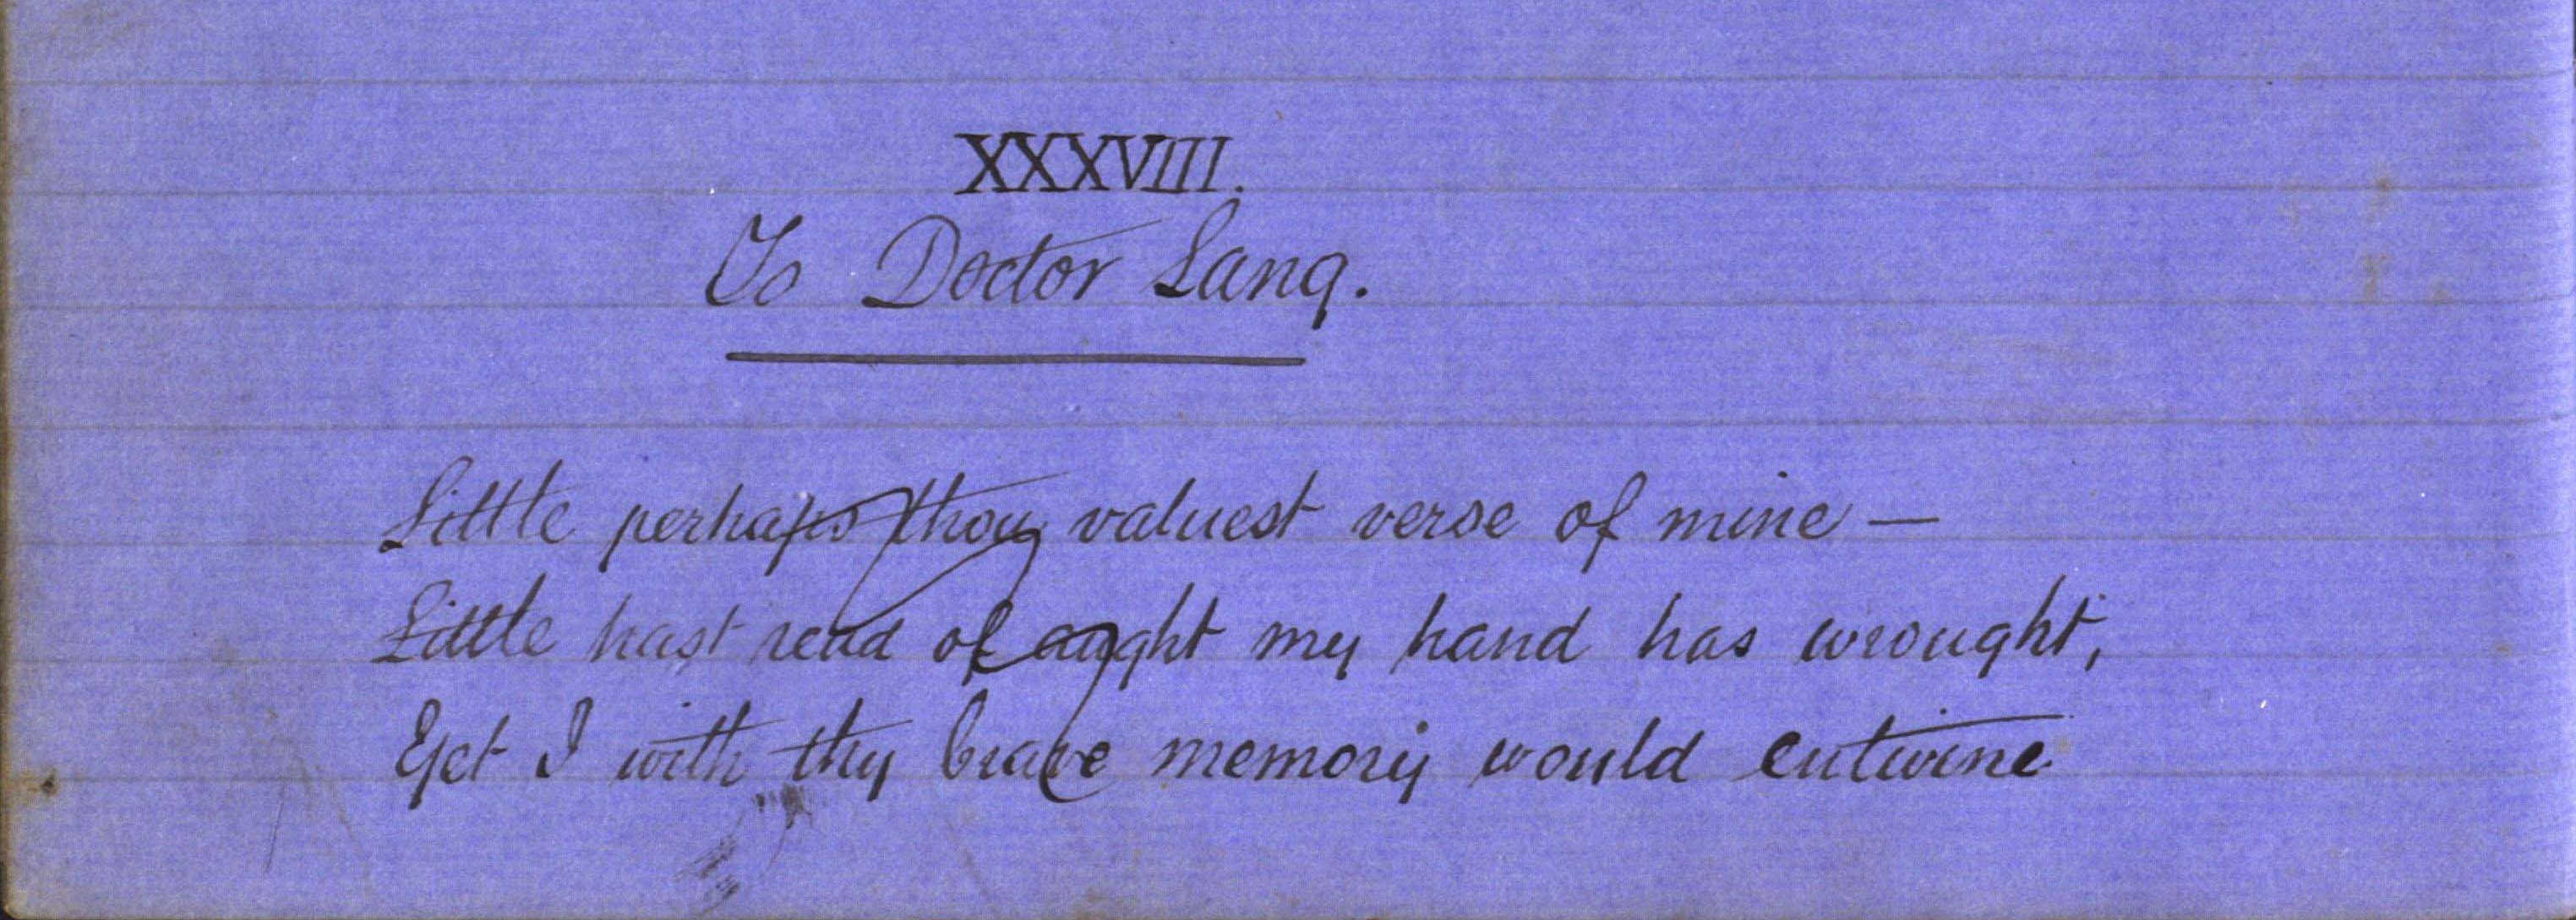 XXXVIII.
To Doctor Lang.
Little perhaps thou valuest verse of mine —
Little hast read of aught my hand has wrought,
Yet I with thy brave memory would entwine